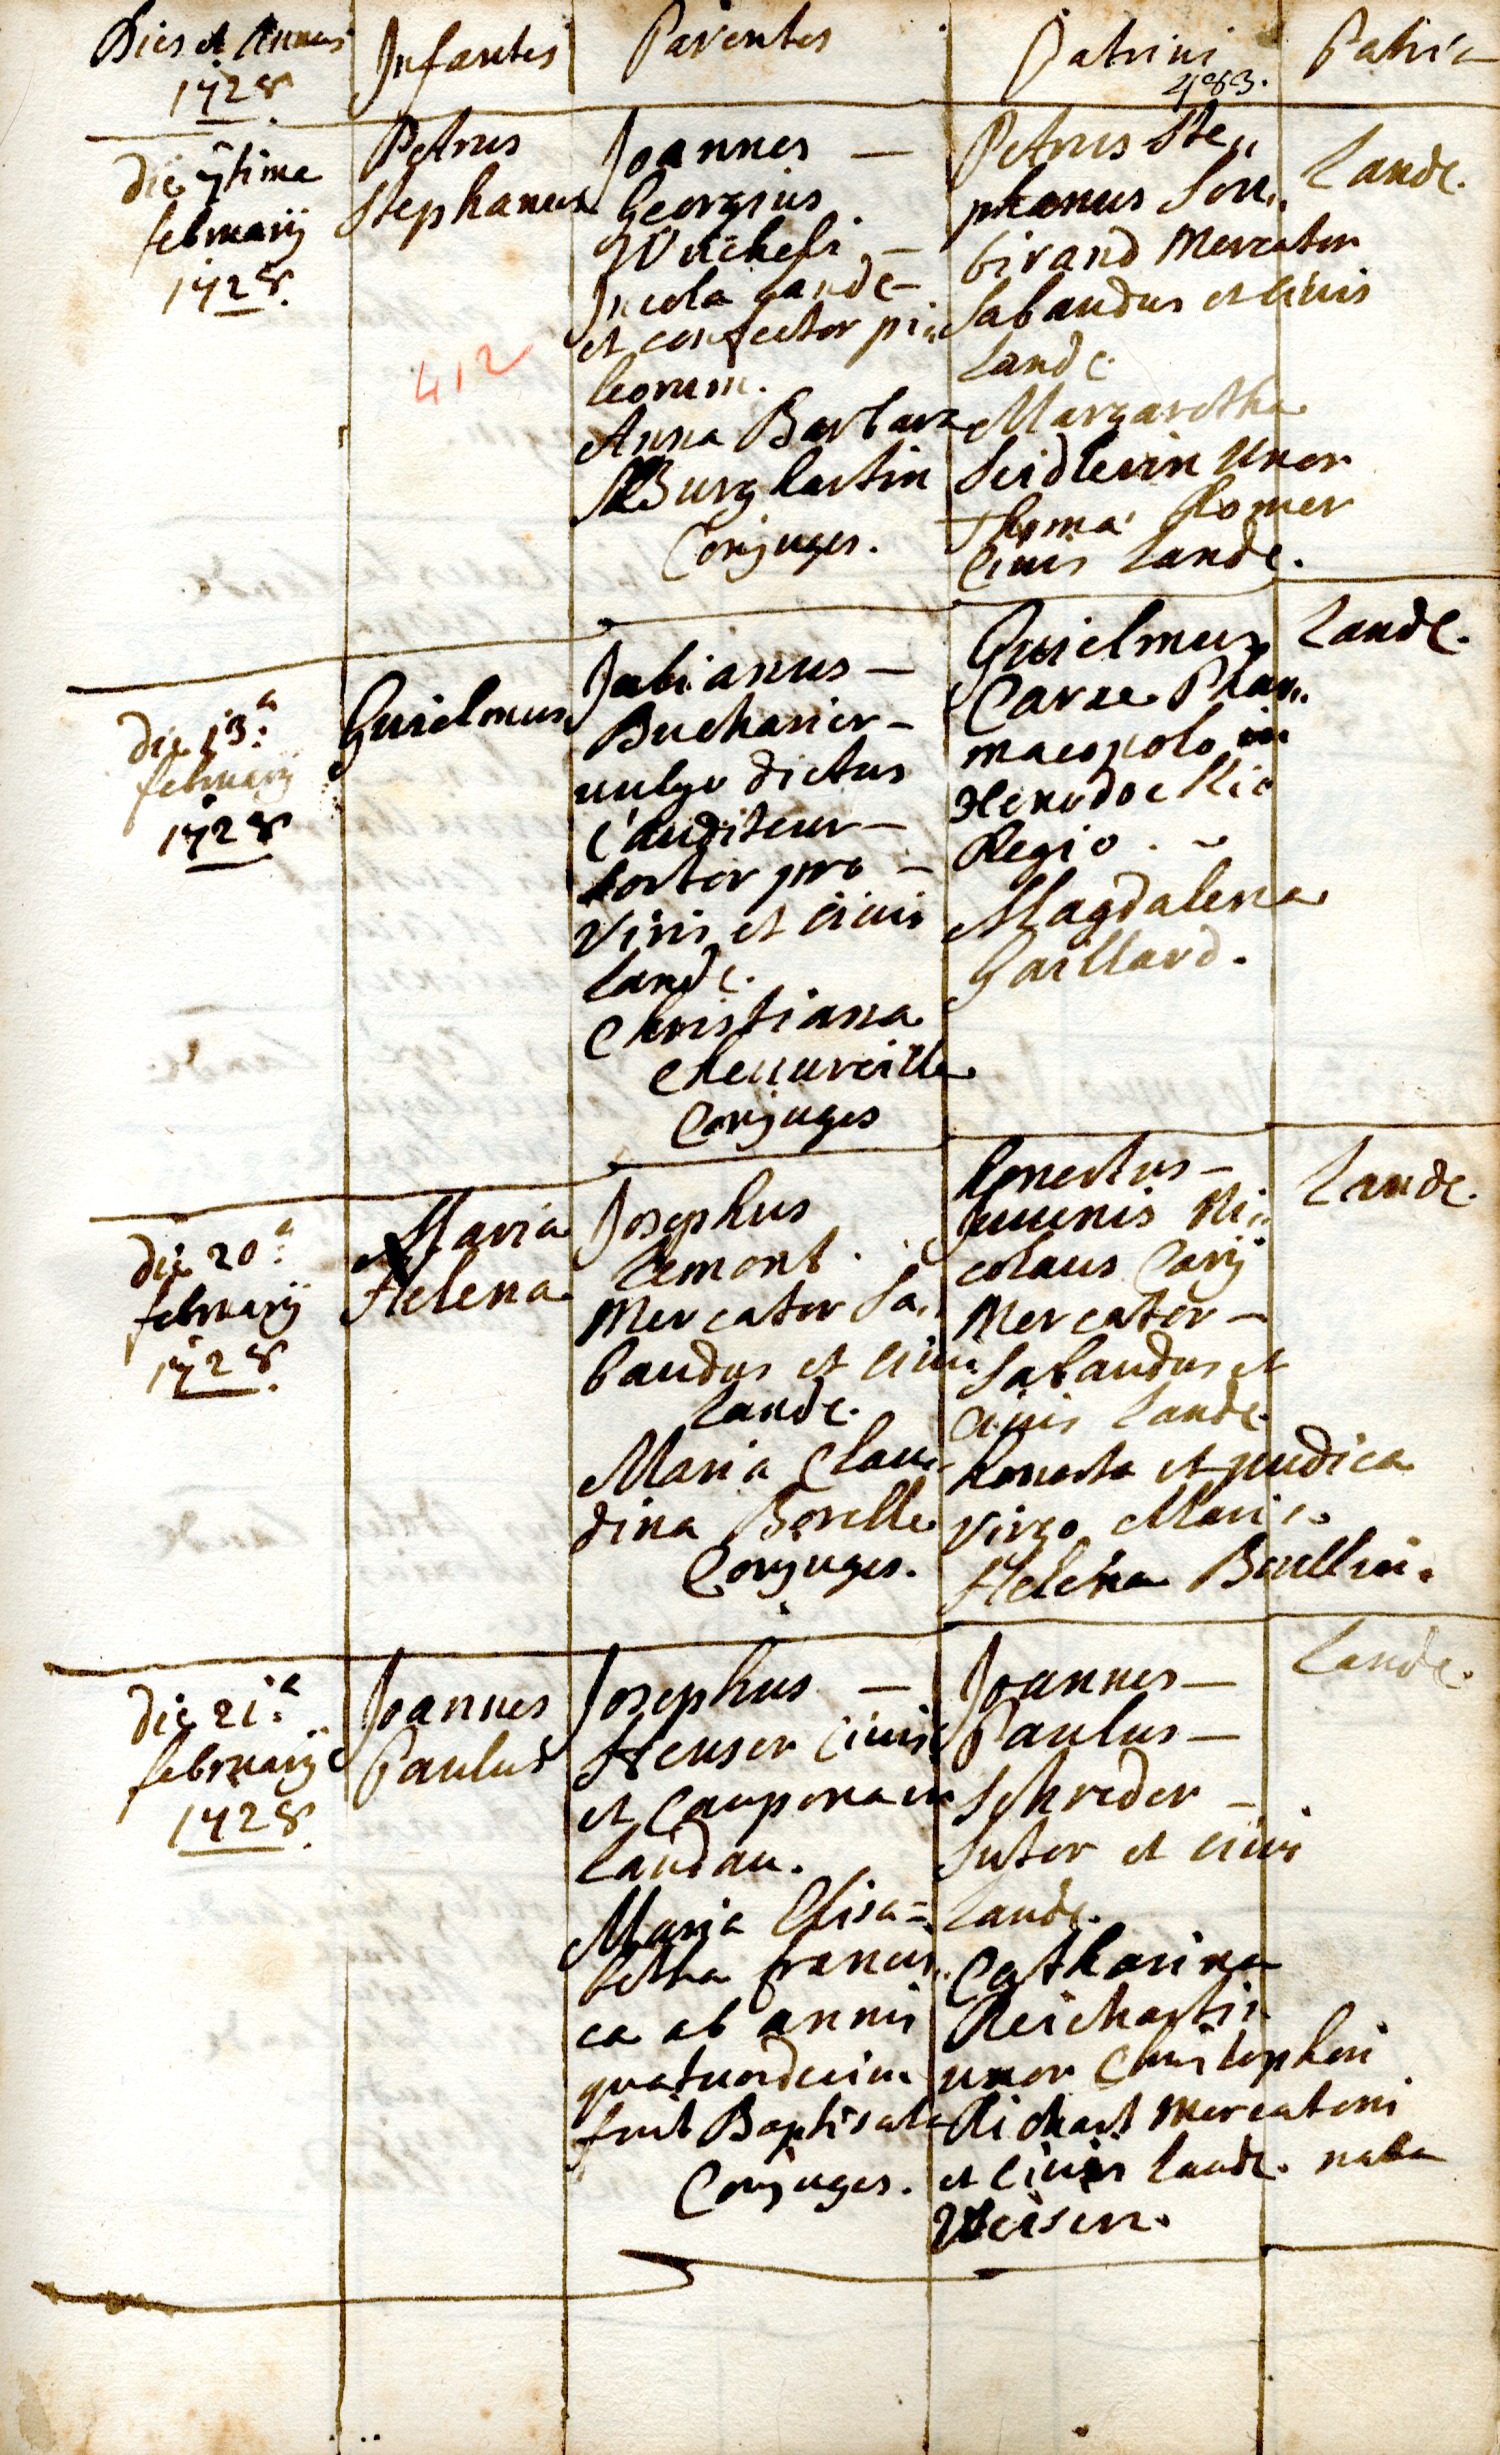 Dies et Annus
1728
Infantes
Parentes
Patrini
483.
Patria
die 7tima
februarij
1728.
Petrus
Stephanus
412
Joannes —
Georgius
Incola Landç
et confector pi„
leorum.
Anna Barbara
Burghartin
Conjuges.
Petrus Ste„
phanus Son„
birand Mercator
Sabaudus et Civis
Landç.
Margaretha
Seidlerin Uxor
Thoma Romer
Civis Landç.
Landç.
die 13.a
februarij
1728
Guielmus
Fabianus —
Buchanier —
vulgo dictus
l'auditeur —
portor pro —
Vinis et Civis
Landç.
Christiana
Cheuureille
Conjuges
Guielmus
Caree Phar„
macopolo in
Xenodochio
Regio.
Magdalena
Gaillard.
Landç.
die 20.a
februarij
1728.
Maria
Helena
Josephus
Lemont.
Mercator Sa„
baudus et Civis
Landç.
Maria Clau„
dina Borelle
Conjuges.
honestus —
Juvenis Ni„
colaus Carij
Mercator —
Sabaudus et
Civis Landç.
honesta et pudica
virgo Maria
Helena
Landç.
die 21.a
februarij
1728.
Joannes
Paulus
Josephus —
Heuser Civis
et Caupo na in
Landau.
Maria Elisa=
betha francis„
ca ab annis
quatuordecim
fuit Baptisata
Conjuges.
Joannes —
Paulus —
Schreder —
Sutor et Civis
Landç.
Catharina
Reichartin
uxor Christophori
Richart Mercatoris
et Civis Landç. nata
Weisen.
Landç.